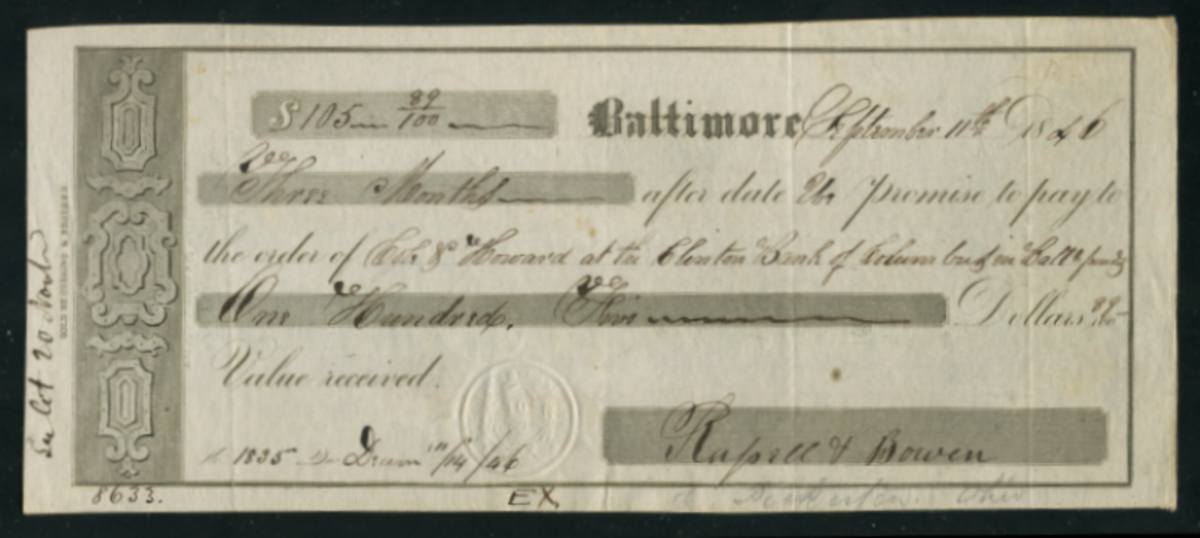 $ 105 — 89/100
Baltimore September 11th 1846
Three Months after date We Promise to pay to
the order of & Howard at the Clinton Bank of Columbus in Balt. funds
One Hundred, Five Dollars 89/100
Value received.
1835 Decem 11/14/46
Russell & Bowen
8633.
EX
Ohio